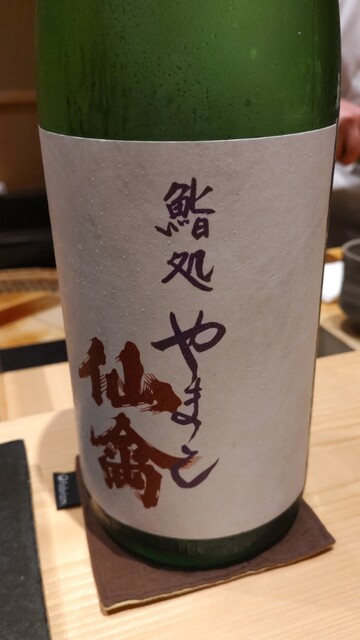 鮨処
やまと
仙禽